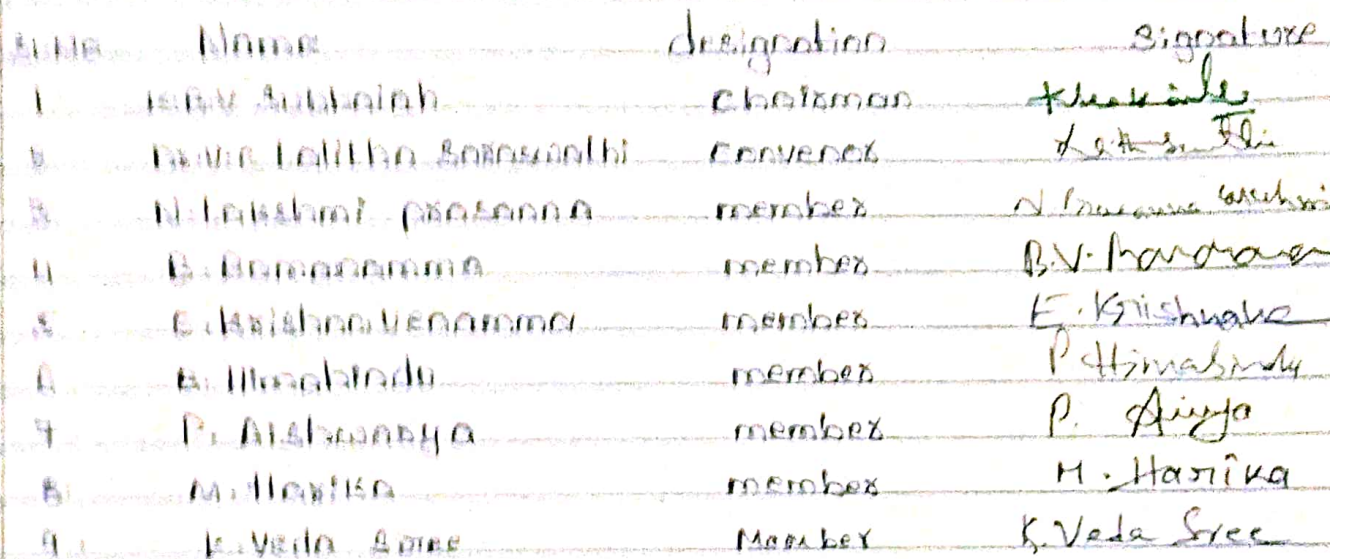 Sl.No Name designation signature
1 K.B.V. Subbaiah chairman
2 Lalitha Saraswathi convenor
3 N. Lakshmi prasanna member N. Prasanna Lakshmi
4 B. Ramanamma member B.V.
5 E. Krishna Venamma member E. Krishnave
6 Himabindu member P Himabindu
7 P. Aishwarya member P.
8 M. Harika member M. Harika
9 K. Veda Sree Member K. Veda Sree